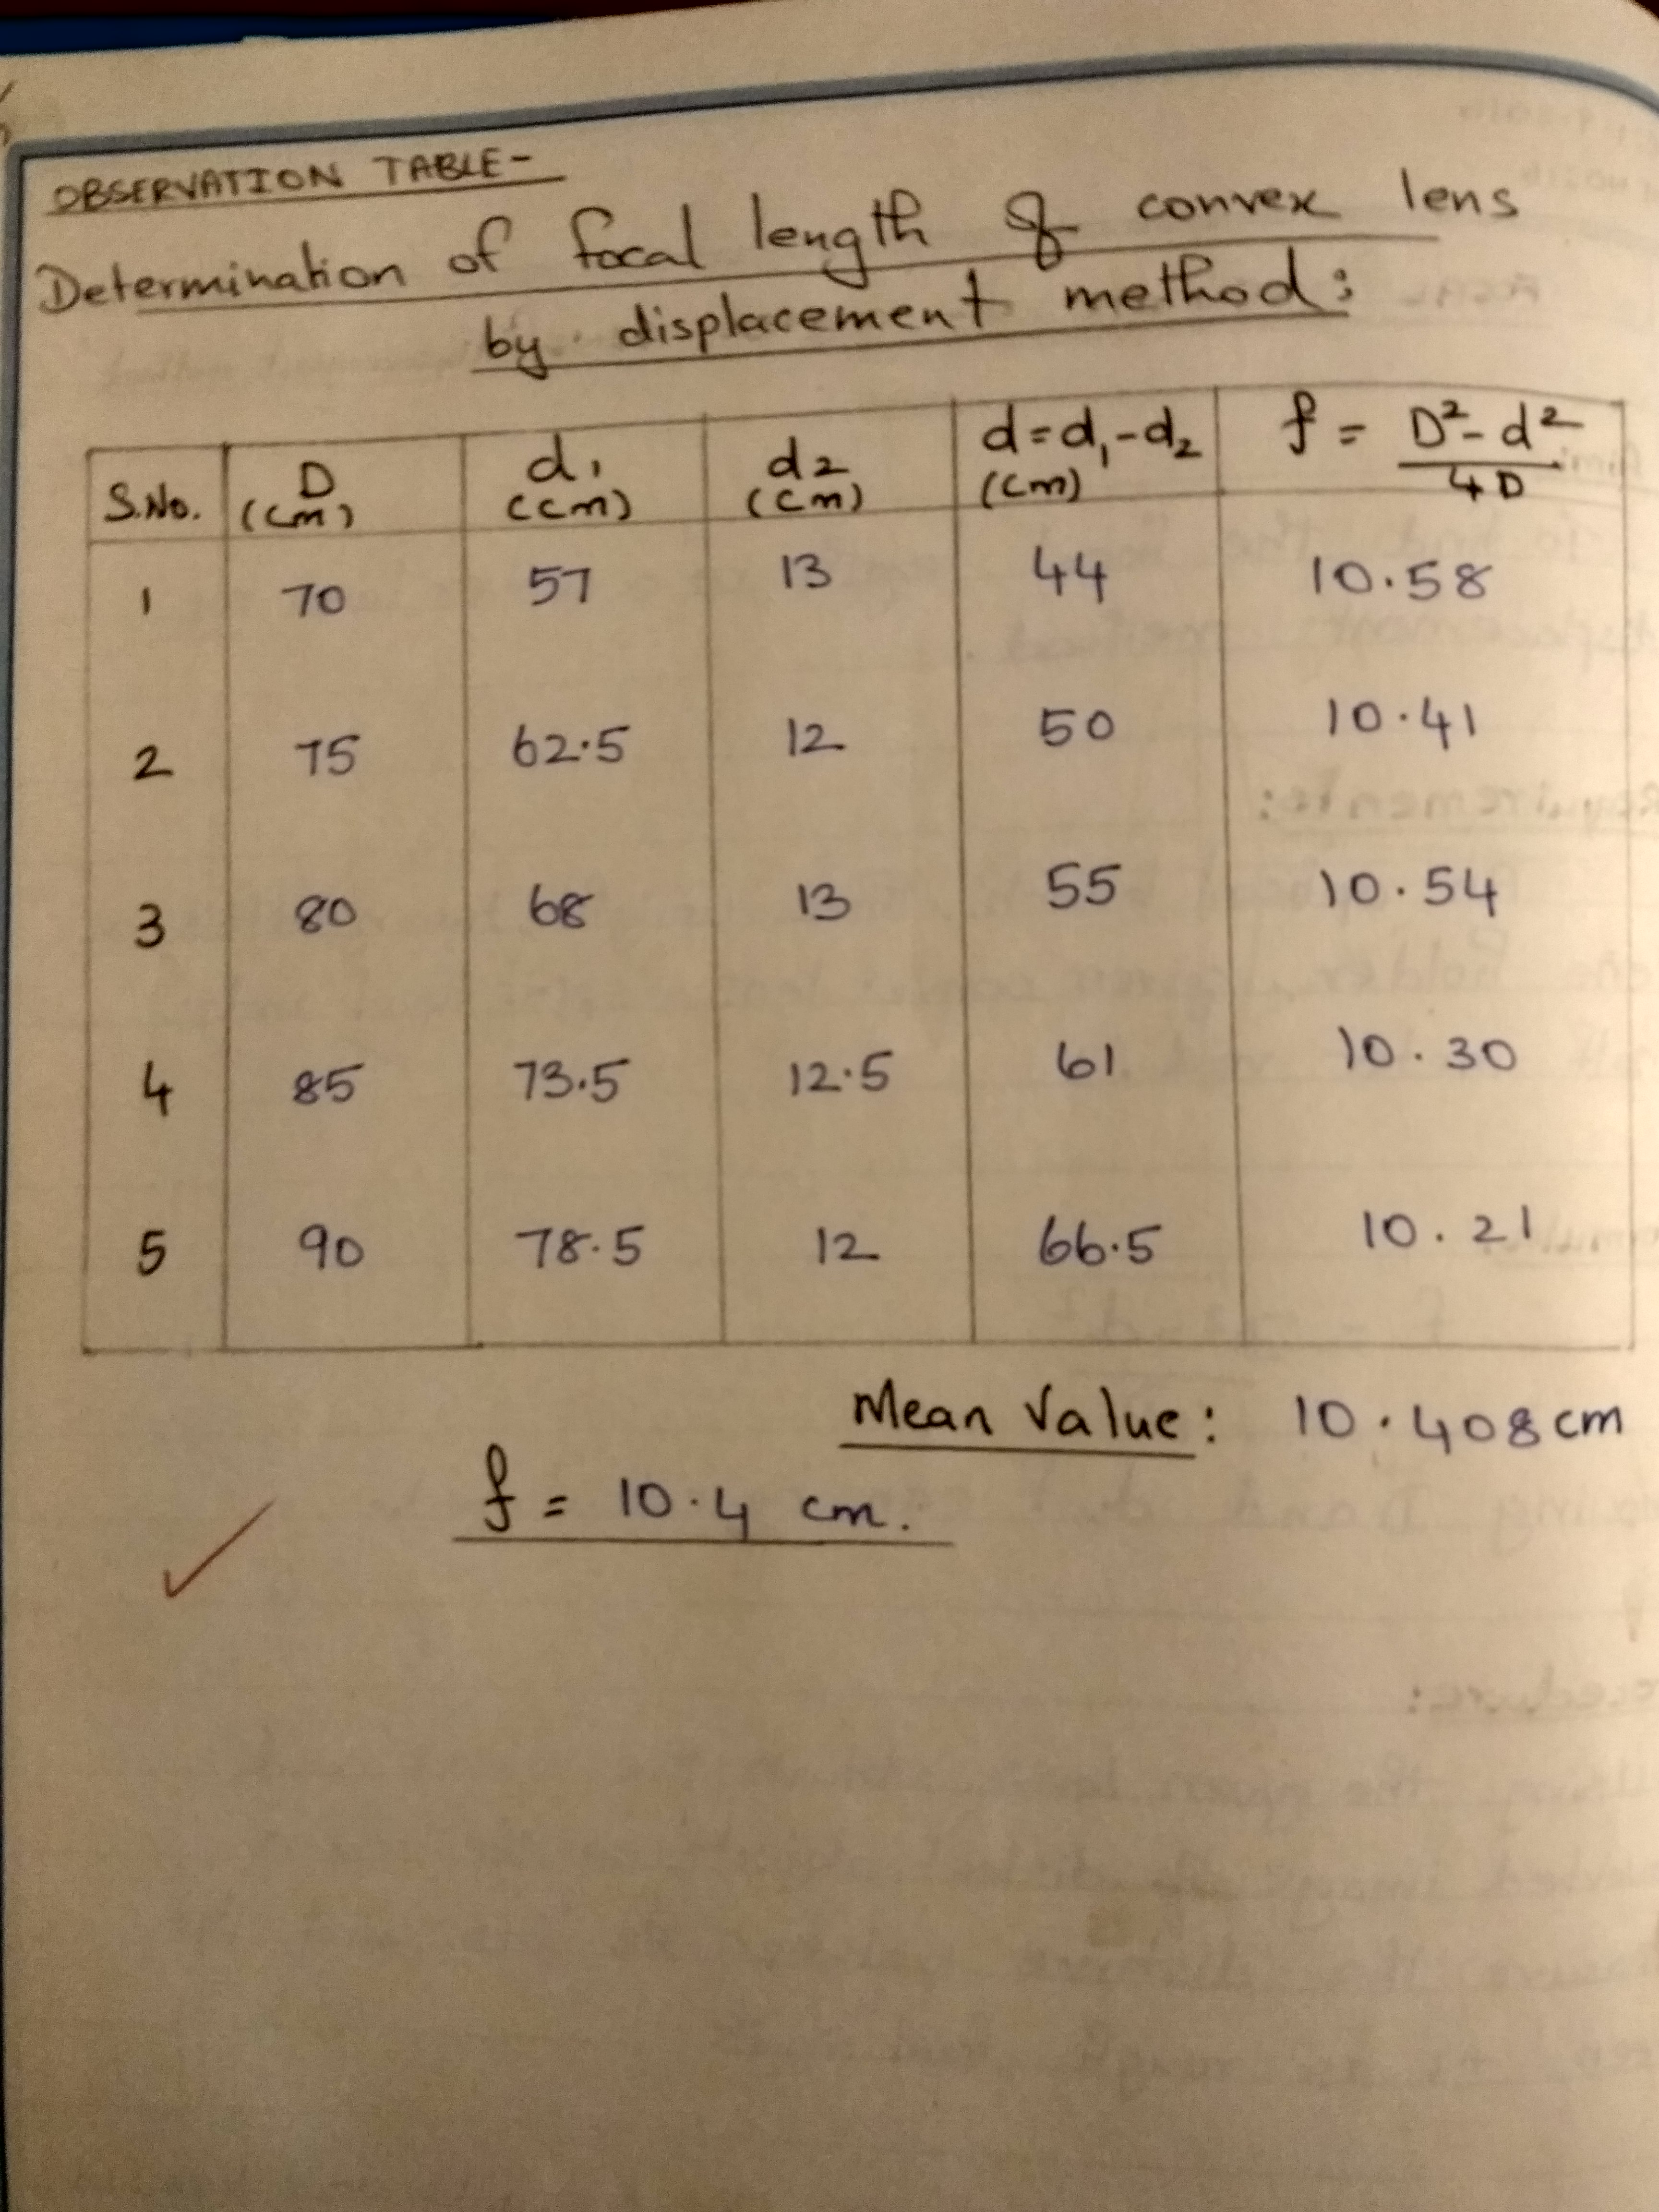 OBSERVATION TABLE-
Determination of focal length of convex lens
by displacement method:
S.No. D (cm) d1 (cm) d2 (cm) d=d1-d2 (cm) f = D²-d²/4D
1 70 57 13 44 10.58
2 75 62.5 12 50 10.41
3 80 68 13 55 10.54
4 85 73.5 12.5 61 10.30
5 90 78.5 12 66.5 10.21
Mean Value: 10.408cm
f = 10.4 cm.